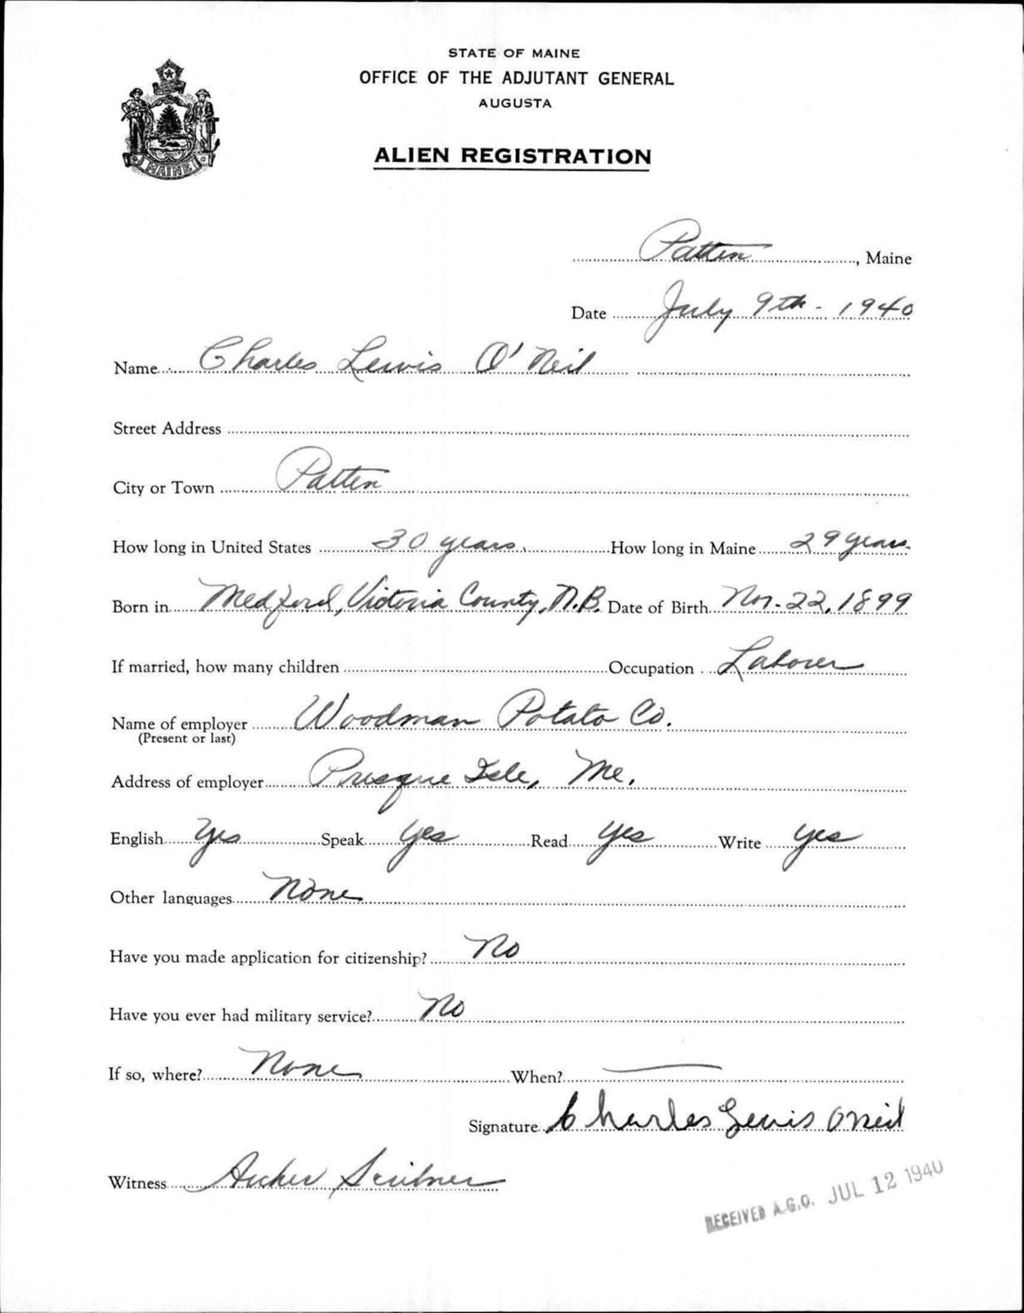 STATE OF MAINE
OFFICE OF THE ADJUTANT GENERAL
AUGUSTA
ALIEN REGISTRATION
MAINE
Patten, Maine
Date July 9th - 1940
Name Charles Lewis O'Neil
Street Address
City or Town Patten
How long in United States 30 years. How long in Maine 29 years.
Born in Medford, Victoria County, N.B. Date of Birth Nov. 22, 1899
If married, how many children Occupation Laborer
Name of employer Woodman Potato Co.
(Present or last)
Address of employer Presque Isle, Me.
English Yes Speak Yes Read Yes Write Yes
Other languages None
Have you made application for citizenship? No
Have you ever had military service? No
If so, where? None When? —
Signature Charles Lewis ONeil
Witness Archer Scribner
RECEIVED A.G.O. JUL 12 1940